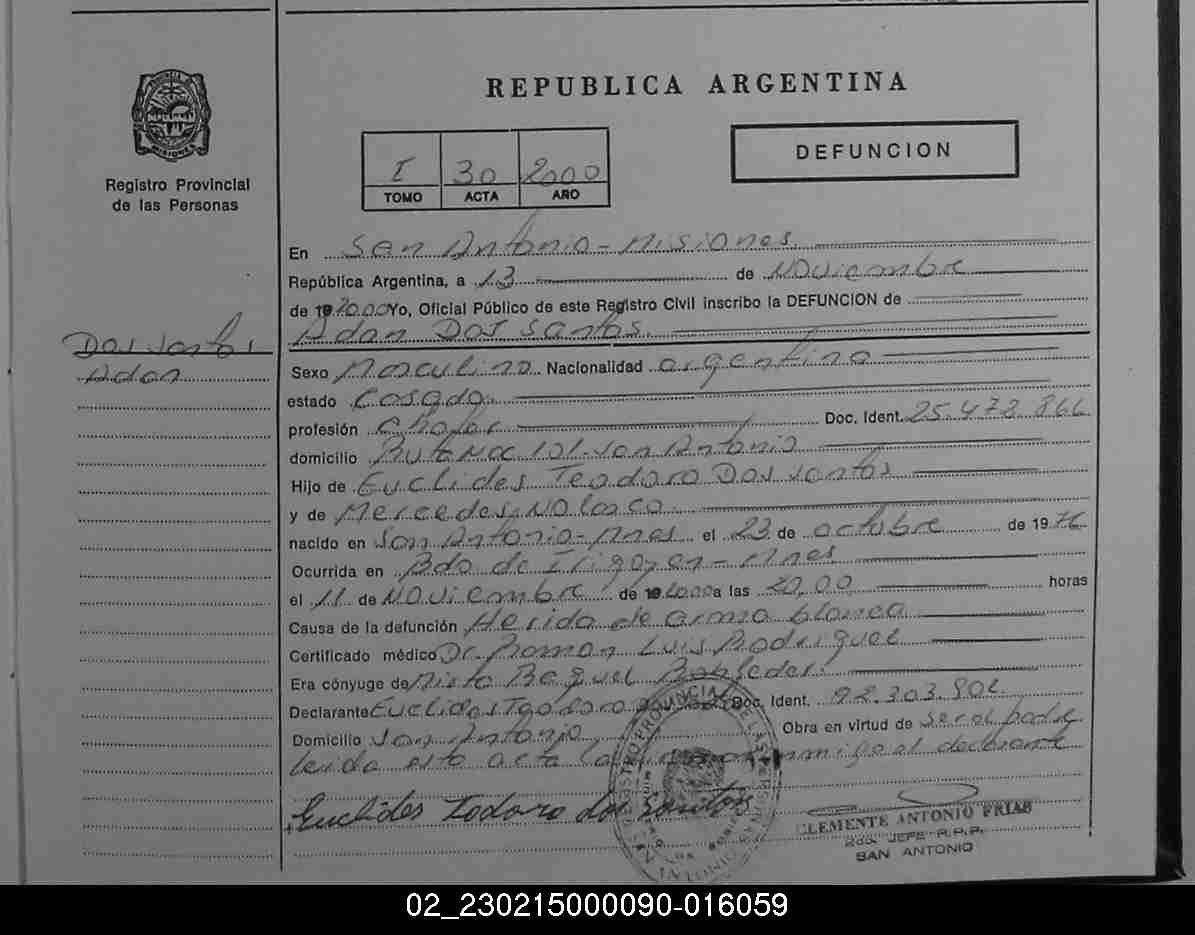 REPUBLICA ARGENTINA
MISIONES
Registro Provincial
de las Personas
I 30 2000
TOMO ACTA AÑO
DEFUNCION
En San Antonio - Misiones
República Argentina, a 13 de Noviembre
de 19 2000 Yo, Oficial Público de este Registro Civil inscribo la DEFUNCION de
Adan Dos Santos
Dos Santos
Adan
Sexo Masculino Nacionalidad argentina
estado Casado
profesión Chofer Doc. Ident. 25.472.866
domicilio 101 - San Antonio
Hijo de Euclides Teodoro Dos Santos
y de Mercedes Nolasco
nacido en San Antonio - Mnes el 23 de octubre de 1976
Ocurrida en Bdo de Irigoyen - Mnes
el 11 de Noviembre de 19 2000 a las 20,00 horas
Causa de la defunción Herida de arma blanca
Certificado médico Dr. Roman Luis Rodriguez
Era cónyuge de Raquel
Declarante Euclides Teodoro Doc. Ident. 92.303.802
Domicilio San Antonio Obra en virtud de ser el padre
leida esta acta la firma conmigo el declarante
Euclides Todoro dos Santos
CLEMENTE ANTONIO FRIAS
2do. JEFE R.P.P.
SAN ANTONIO
02_230215000090-016059